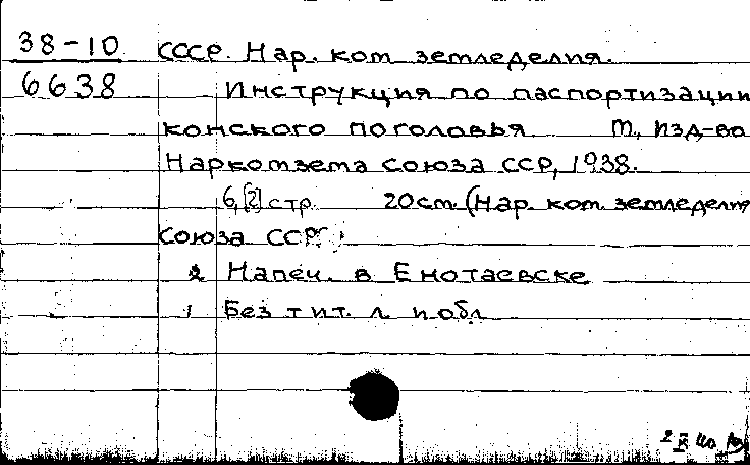 38-10 СССР. Нар. ком. земледелия.
6638 Инструкция по паспортизации
конского поголовья. М., Изд-во
Наркомзема Союза ССР, 1938.
6, [2] стр. 20 см. (Нар. ком. земледелия
Союза ССР)
2 Напеч. в Енотаевске
1 Без тит. л. и обл.